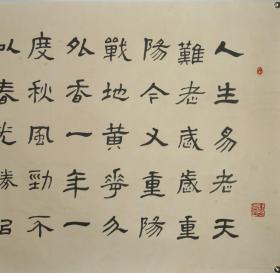 人生易老天
難老歲歲重
陽今又重陽
戰地黃華分
外香一年一
度秋風勁不
似春光勝